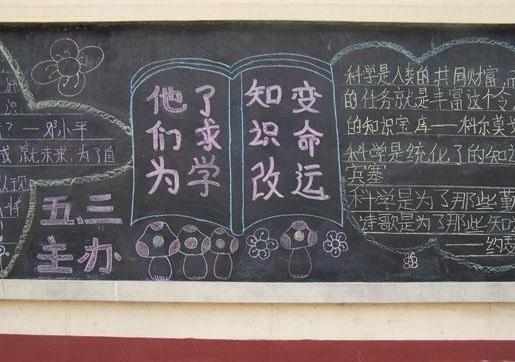 ?——邓小平
就未来,为了自
五.三
主办
他们为
了求学
知识改
变命运
科学是人类的共同财富,而
的任务就是丰富这个令
的知识宝库——科尔莫
科学是统化了的知识
宾塞
科学是为了那些勤
诗歌是为了那些知
——约瑟